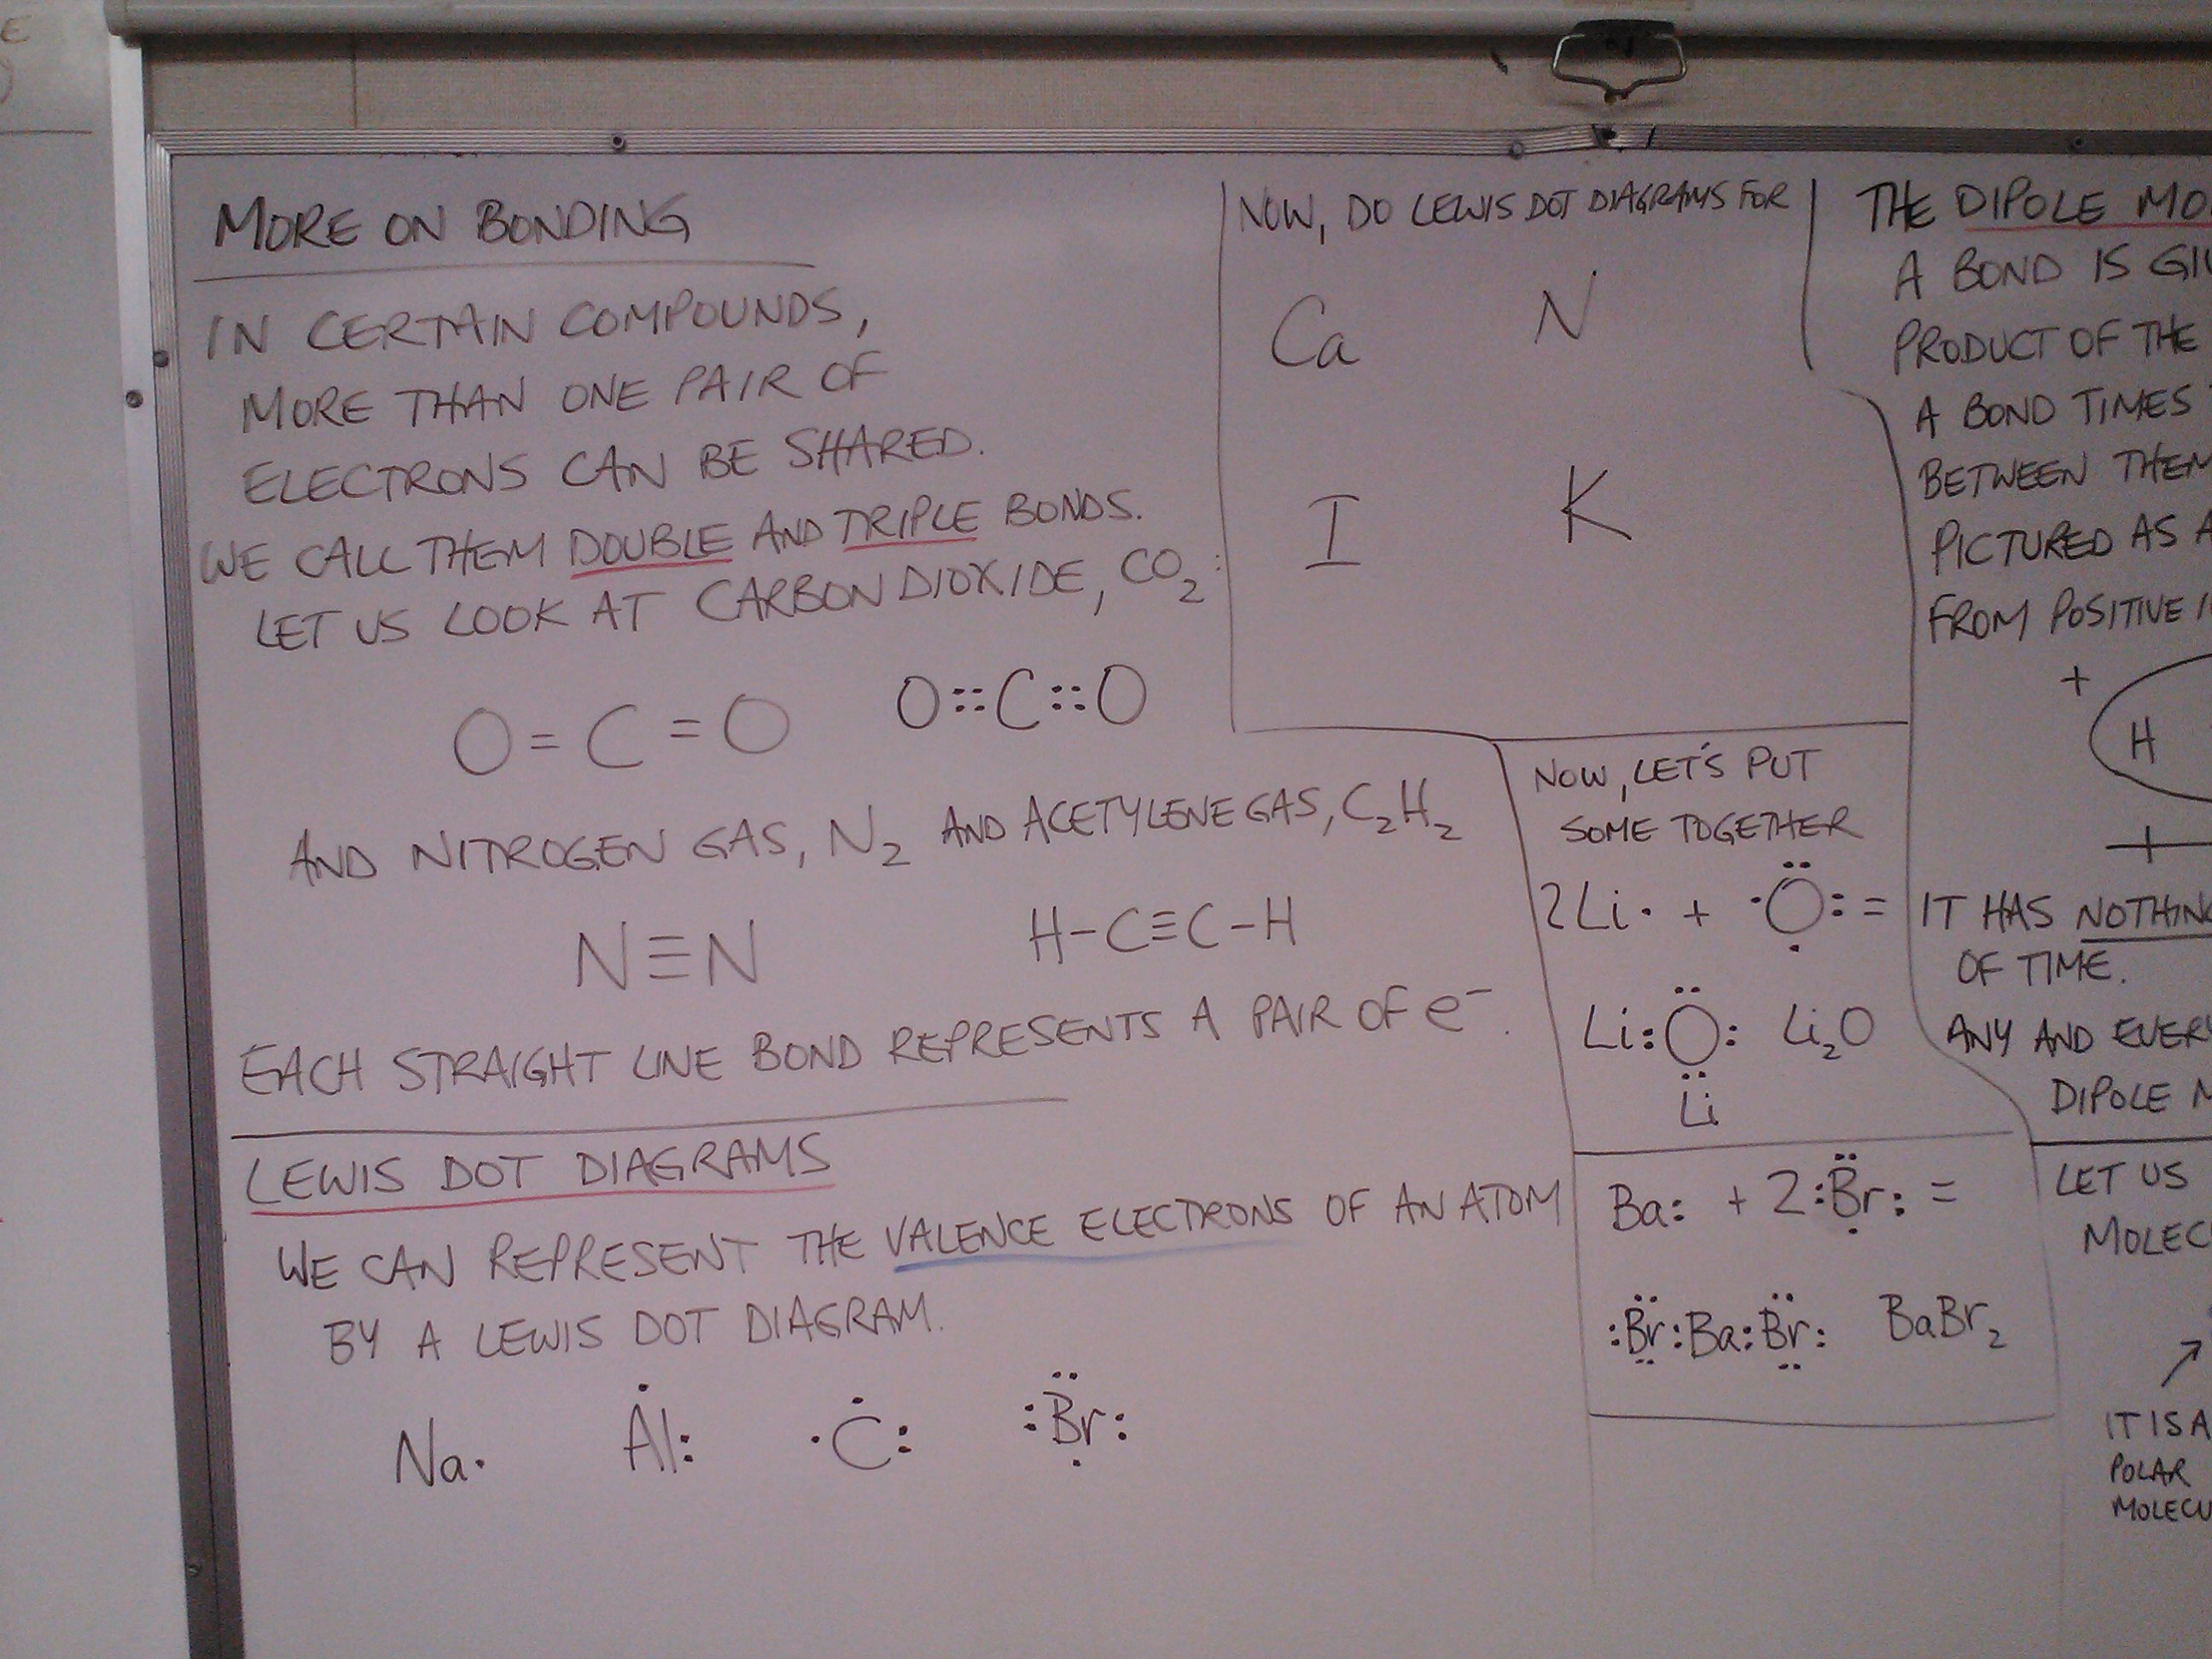 MORE ON BONDING
IN CERTAIN COMPOUNDS,
MORE THAN ONE PAIR OF
ELECTRONS CAN BE SHARED.
WE CALL THEM DOUBLE AND TRIPLE BONDS.
LET US LOOK AT CARBON DIOXIDE, CO₂:
O=C=O O::C::O
AND NITROGEN GAS, N₂ AND ACETYLENE GAS, C₂H₂
N≡N H-C≡C-H
EACH STRAIGHT LINE BOND REPRESENTS A PAIR OF e⁻.
LEWIS DOT DIAGRAMS
WE CAN REPRESENT THE VALENCE ELECTRONS OF AN ATOM
BY A LEWIS DOT DIAGRAM.
Na· Al: ·C: :Br:
NOW, DO LEWIS DOT DIAGRAMS FOR
Ca N
I K
NOW, LET'S PUT
SOME TOGETHER
2Li· + ·O: =
Li:O: Li₂O
Li
Ba: + 2:Br: =
:Br:Ba:Br: BaBr₂
THE DIPOLE
A BOND IS
PRODUCT OF THE
A BOND TIMES
BETWEEN THEM
PICTURED AS
FROM POSITIVE
+
H
IT HAS NOTHING
OF TIME.
ANY AND EVERY
DIPOLE
LET US
IT IS A
POLAR